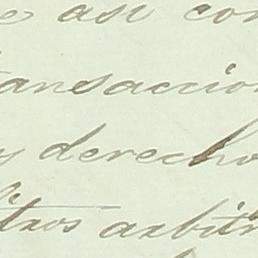 asi con
ansaccion
y derecho
tros arbitr